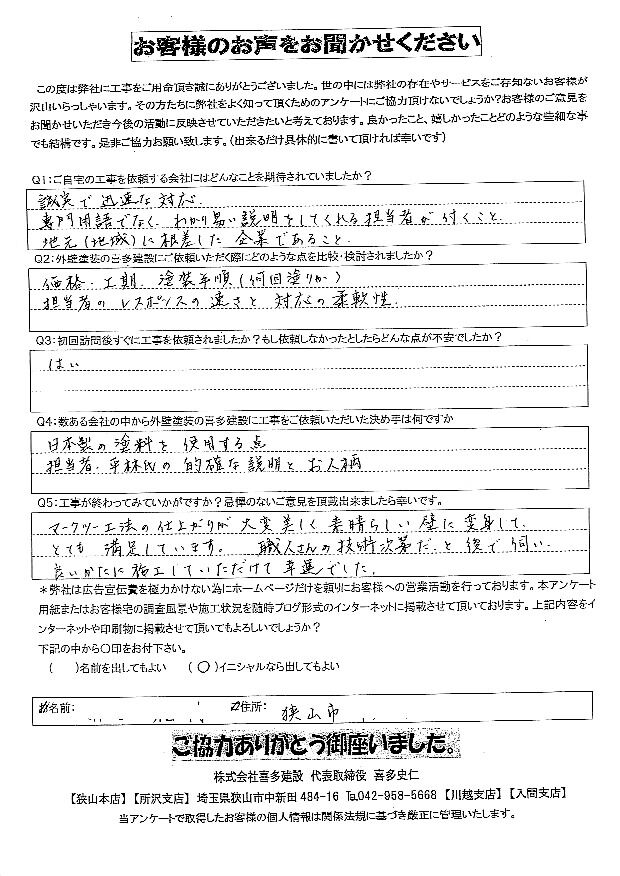 お客様のお声をお聞かせください
この度は弊社に工事をご用命頂き誠にありがとうございました。世の中には弊社の存在やサービスをご存知ないお客様が
沢山いらっしゃいます。その方たちに弊社をよく知って頂くためのアンケートにご協力頂けないでしょうか?お客様のご意見を
お聞かせいただき今後の活動に反映させていただきたいと考えております。良かったこと、嬉しかったことどのような些細な事
でも結構です。是非ご協力お願い致します。(出来るだけ具体的に書いて頂ければ幸いです)
Q1:ご自宅の工事を依頼する会社にはどんなことを期待されていましたか?
誠実で迅速な対応.
専門用語でなく、わかり易い説明をしてくれる担当者が付くこと.
地元(地域)に根差した企業であること.
Q2:外壁塗装の喜多建設にご依頼いただく際にどのような点を比較・検討されましたか?
価格・工期 塗装手順(何回塗りか)
担当者のレスポンスの速さと対応の柔軟性.
Q3:初回訪問後すぐに工事を依頼されましたか?もし依頼しなかったとしたらどんな点が不安でしたか?
はい
Q4:数ある会社の中から外壁塗装の喜多建設に工事をご依頼いただいた決め手は何ですか
日本製の塗料を使用する点
担当者・平林氏の的確な説明とお人柄
Q5:工事が終わってみていかがですか?忌憚のないご意見を頂戴出来ましたら幸いです。
マークツー工法の仕上がりが大変美しく素晴らしい壁に変身して、
とても満足しています。 職人さんの技術次第だと後で伺い、
良いかたに施工していただけて幸運でした.
＊弊社は広告宣伝費を極力かけない為にホームページだけを頼りにお客様への営業活動を行っております。本アンケート
用紙またはお客様宅の調査風景や施工状況を随時ブログ形式のインターネットに掲載させて頂いております。上記内容をイ
ンターネットや印刷物に掲載させて頂いてもよろしいでしょうか?
下記の中から〇印をお付下さい。
( )名前を出してもよい (〇)イニシャルなら出してもよい
お名前: ご住所: 狭山市
ご協力ありがとう御座いました。
株式会社喜多建設 代表取締役 喜多史仁
【狭山本店】【所沢支店】 埼玉県狭山市中新田484-16 ℡042-958-5668 【川越支店】【入間支店】
当アンケートで取得したお客様の個人情報は関係法規に基づき厳正に管理いたします。